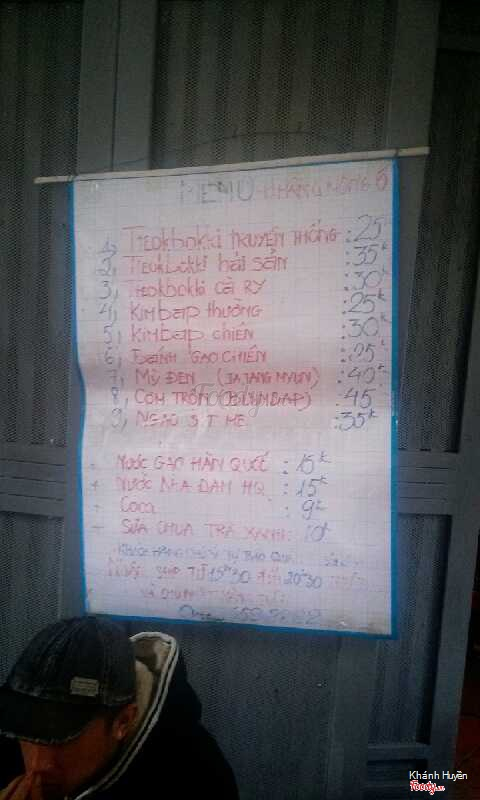 MENU
1, Tteokbokki TRUYỀN THỐNG : 25k
2, Tteokbokki hải sản : 35k
3, Tteokbokki CÀ RY : 30k
4, Kimbap THƯỜNG : 25k
5, Kimbap CHIÊN : 30k
6, BÁNH GẠO CHIÊN : 25k
7, MỲ ĐEN (JA JANG MYUN) : 40k
8, CƠM TRỘN (BIBIMBAP) : 45
9, NGAO SỐT ME : 35k
NƯỚC GẠO HÀN QUỐC : 15k
+ NƯỚC NHA ĐAM HQ : 15k
- Coca : 9k
- SỮA CHUA TRÀ XANH : 10k
KHÁCH HÀNG CHÚ Ý TỰ BẢO QUẢN
SHIP TỪ 15h30 ĐẾN 20h30
Khánh Huyền
Foody.vn